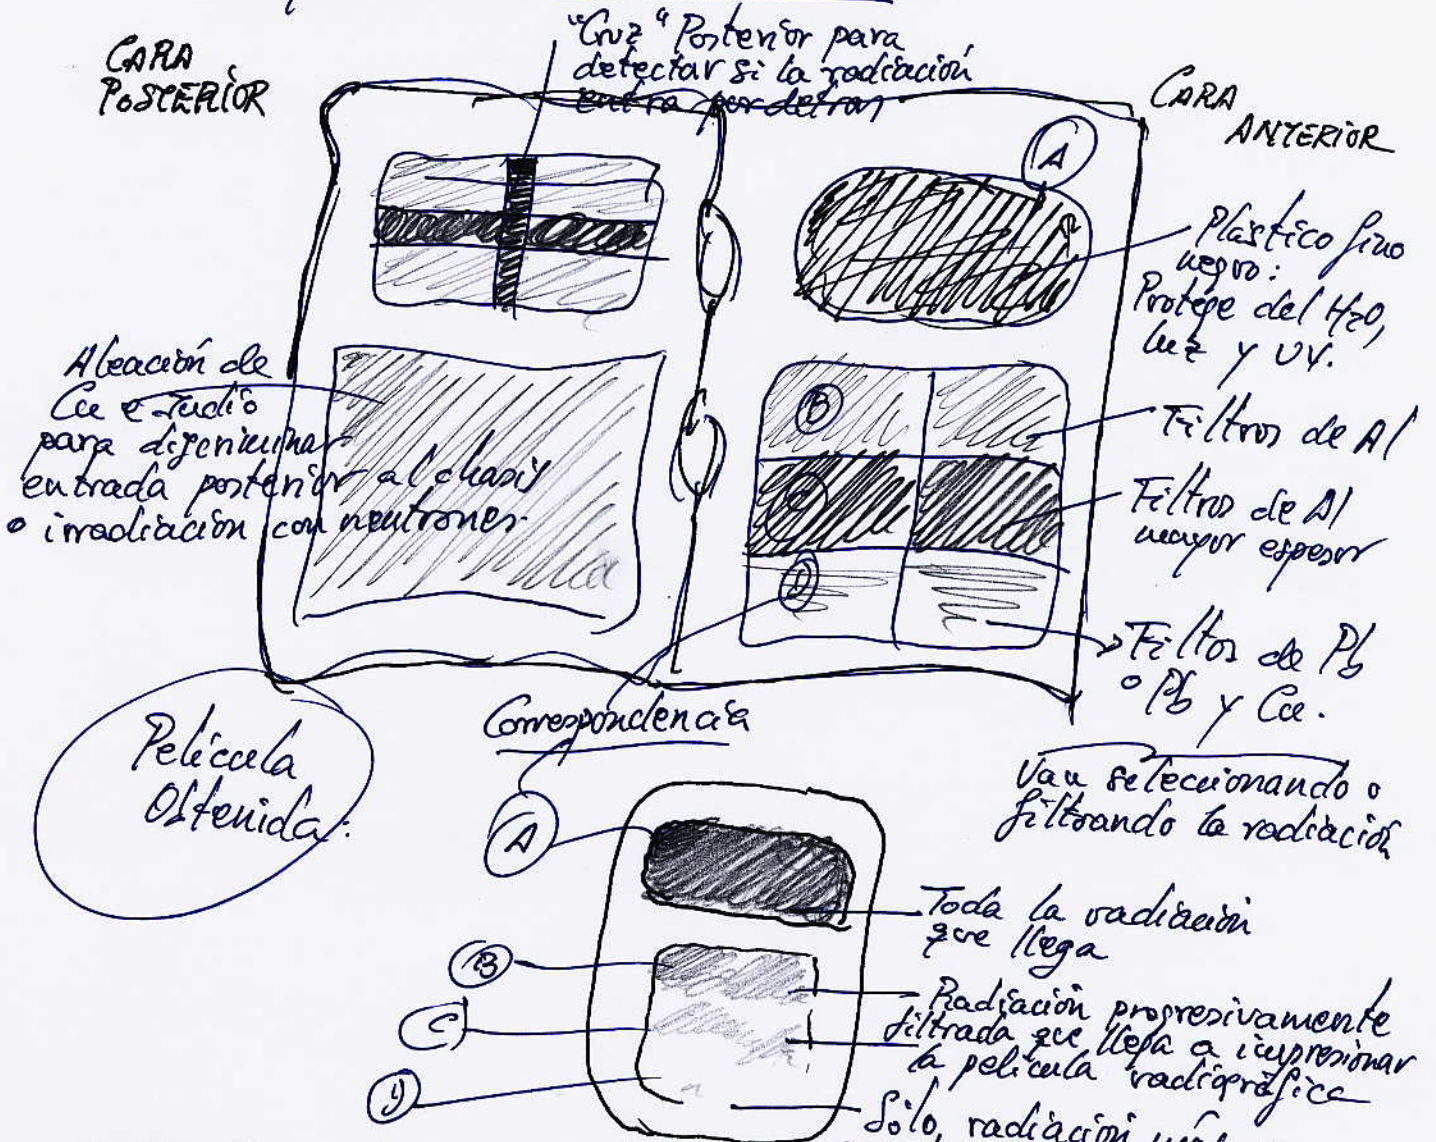 CARA
POSTERIOR
"Cruz" Posterior para
detectar si la radiación
entra por detras
CARA
ANTERIOR
A
Plástico fino
negro:
Protege del H2O,
luz y UV.
Aleación de
Cu e Indio
para discriminar
entrada posterior al chasis
o irradiación con neutrones.
B
Filtros de Al
C
Filtros de Al
mayor espesor
D
Filtros de Pb
o Pb y Cu.
Correspondencia
Van seleccionando o
filtrando la radiación
Película
Obtenida:
A
Toda la radiación
que llega
B
Radiación progresivamente
C
filtrada que llega a impresionar
la película radiográfica
D
Sólo, radiación